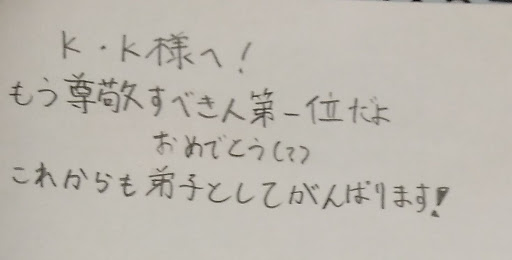 K・K様へ!
もう尊敬すべき人第一位だよ
おめでとう(??)
これからも弟子としてがんばります!